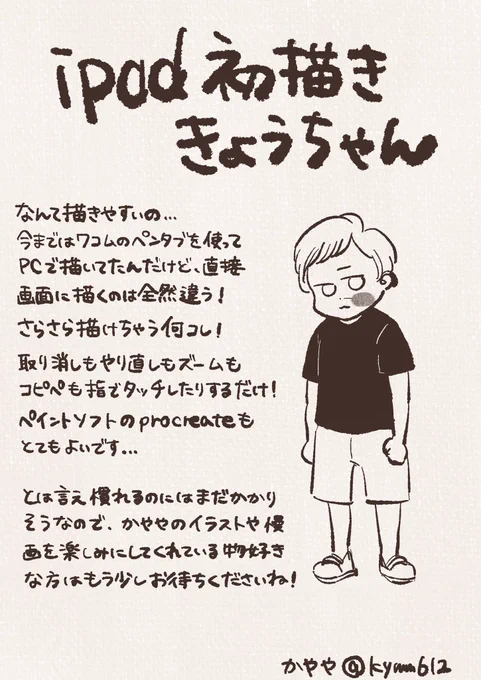 ipad 初描き
きょうちゃん
なんて描きやすいの…
今まではワコムのペンタブを使って
PCで描いてたんだけど、直接
画面に描くのは全然違う！
さらさら描けちゃう何コレ！
取り消しもやり直しもズームも
コピペも指でタッチしたりするだけ！
ペイントソフトのprocreateも
とてもよいです…
とは言え慣れるのにはまだかかり
そうなので、かややのイラストや漫
画を楽しみにしてくれている物好き
な方はもう少しお待ちくださいね！
かやや @kyum612